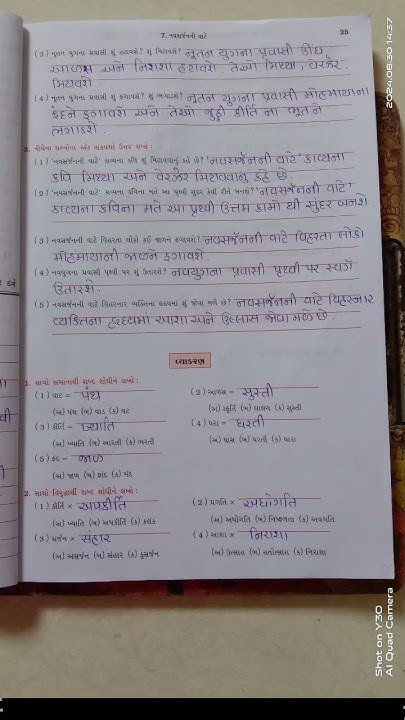 7. નવસર્જનની વાટે 25
(3) નૂતન યુગના પ્રવાસી શું હટાવશે? શું મિટાવશે? નૂતન યુગના પ્રવાસી ક્રોધ,
આળસ અને નિરાશા હટાવશે. તેઓ મિથ્યા, વેરઝેર
મિટાવશે.
(4) નૂતન યુગના પ્રવાસી શું ફગાવશે? શું ભગાડશે? નૂતન યુગના પ્રવાસી મોહમાયાના
ફંદને ફગાવશે અને તેઓ જુઠ્ઠી કીર્તિ ના ભૂતને
ભગાડશે.
3. નીચેના પ્રશ્નોના એક વાક્યમાં ઉત્તર લખો :
(1) 'નવસર્જનની વાટે' કાવ્યના કવિ શું મિટાવવાનું કહે છે? 'નવસર્જનની વાટે' કાવ્યના
કવિ મિથ્યા અને વેરઝેર મિટાવવાનું કહે છે.
(2) 'નવસર્જનની વાટે' કાવ્યના કવિના મતે આ પૃથ્વી સુંદર કેવી રીતે બનશે? 'નવસર્જનની વાટે'
કાવ્યના કવિના મતે આ પૃથ્વી ઉત્તમ કામો થી સુંદર બનશે.
(3) નવસર્જનની વાટે વિહરતા લોકો કઈ જાળને ફગાવશે? નવસર્જનની વાટે વિહરતા લોકો
મોહમાયાની જાળને ફગાવશે.
(4) નવયુગના પ્રવાસી પૃથ્વી પર શું ઉતારશે? નવયુગના પ્રવાસી પૃથ્વી પર સ્વર્ગ
ઉતારશે.
(5) નવસર્જનની વાટે વિહરનાર વ્યક્તિના હૃદયમાં શું જોવા મળે છે? નવસર્જનની વાટે વિહરનાર
વ્યક્તિના હૃદયમાં આશા અને ઉલ્લાસ જોવા મળે છે.
વ્યાકરણ
1. સાચો સમાનાર્થી શબ્દ શોધીને લખો :
(1) વાટ = પંથ (2) આળસ = સુસ્તી
(અ) પંથ (બ) વાડ (ક) વટ (અ) સ્ફૂર્તિ (બ) લાલચ (ક) સુસ્તી
(3) કીર્તિ = ખ્યાતિ (4) ધરા = ધરતી
(અ) ખ્યાતિ (બ) આરતી (ક) ભરતી (અ) ઘાસ (બ) ધરતી (ક) ધારા
(5) ફંદ = જાળ
(અ) જાળ (બ) છંદ (ક) મંદ
2. સાચો વિરુદ્ધાર્થી શબ્દ શોધીને લખો :
(1) કીર્તિ × અપકીર્તિ (2) પ્રગતિ × અધોગતિ
(અ) ખ્યાતિ (બ) અપકીર્તિ (ક) કલંક (અ) અધોગતિ (બ) નિષ્ફળતા (ક) અવગતિ
(3) સર્જન × સંહાર (4) આશા × નિરાશા
(અ) અસર્જન (બ) સંહાર (ક) કુસર્જન (અ) ઉત્સાહ (બ) હતોત્સાહ (ક) નિરાશા
2024.08.30 14:37
Shot on Y30
AI Quad Camera